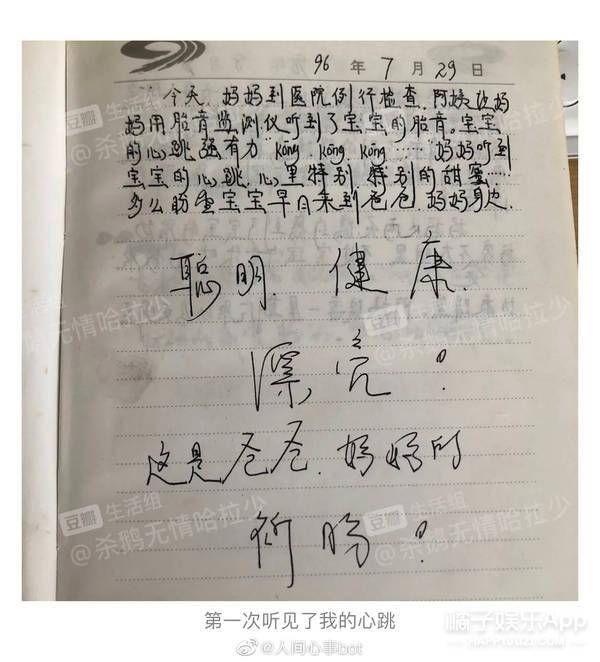 96 年 7 月 29 日
今天,妈妈到医院例行检查,阿姨让妈
妈用胎音监测仪听到了宝宝的胎音。宝宝
的心跳强有力"kōng、kōng、kōng……"妈妈听到
宝宝的心跳,心里特别、特别的甜蜜……
多么盼望宝宝早日来到爸爸、妈妈身边.
聪明、健康、
漂亮!
这是爸爸、妈妈的
祈盼!
豆瓣 生活组
@杀鹅无情哈拉少
豆瓣 生活组
@杀鹅无情哈拉少
豆瓣 生活组
@杀鹅无情哈拉少
豆瓣 生活组
@杀鹅无情哈拉少
第一次听见了我的心跳
@人间心事bot
橘子娱乐App
HAPPYJUZI.COM